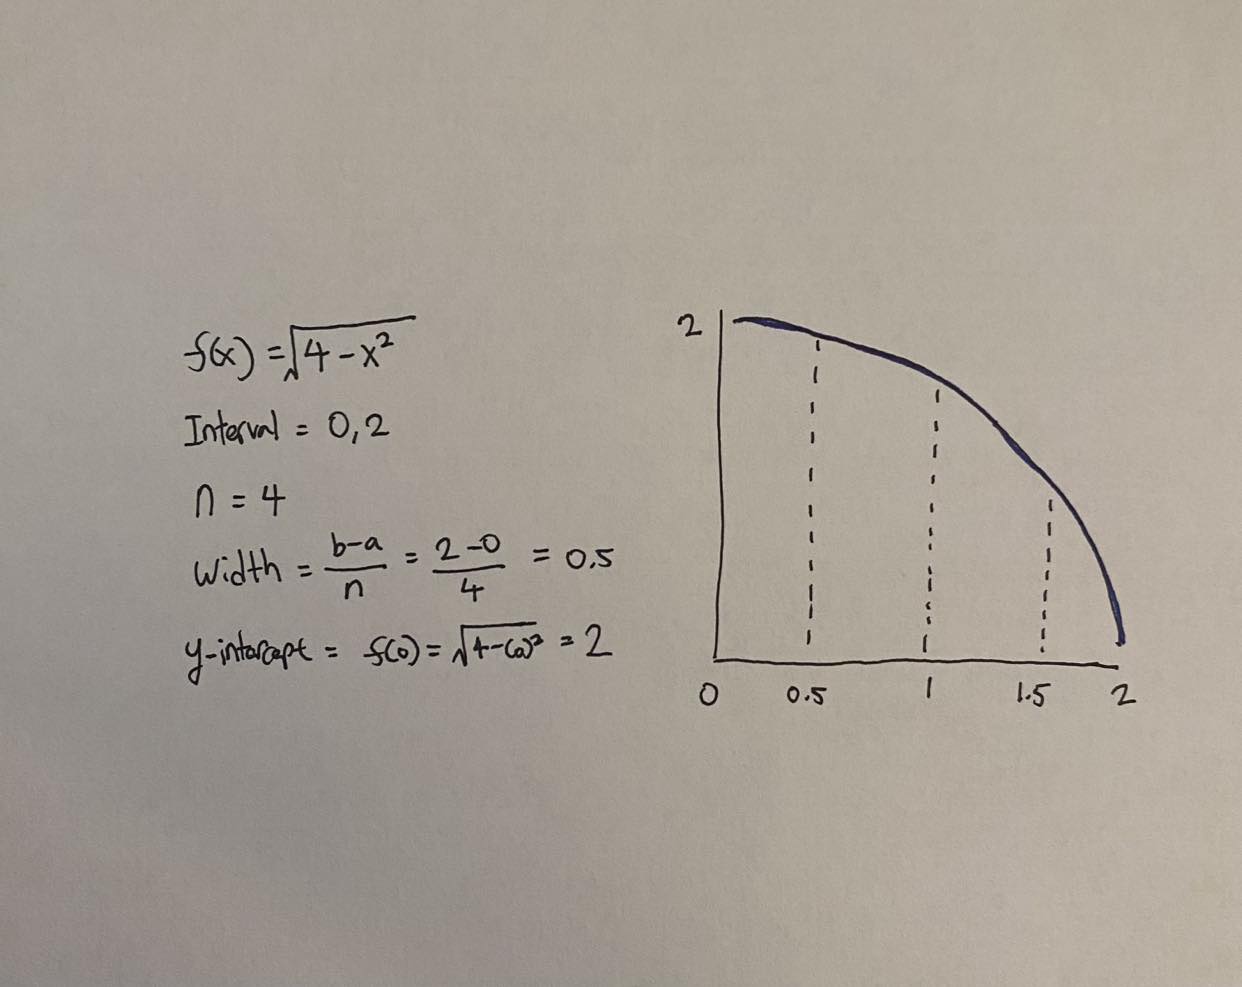 f(x) = √4-x²
Interval = 0,2
n = 4
Width = b-a/n = 2-0/4 = 0.5
y-intercept = f(0) = √4-(0)² = 2
2
0 0.5 1 1.5 2